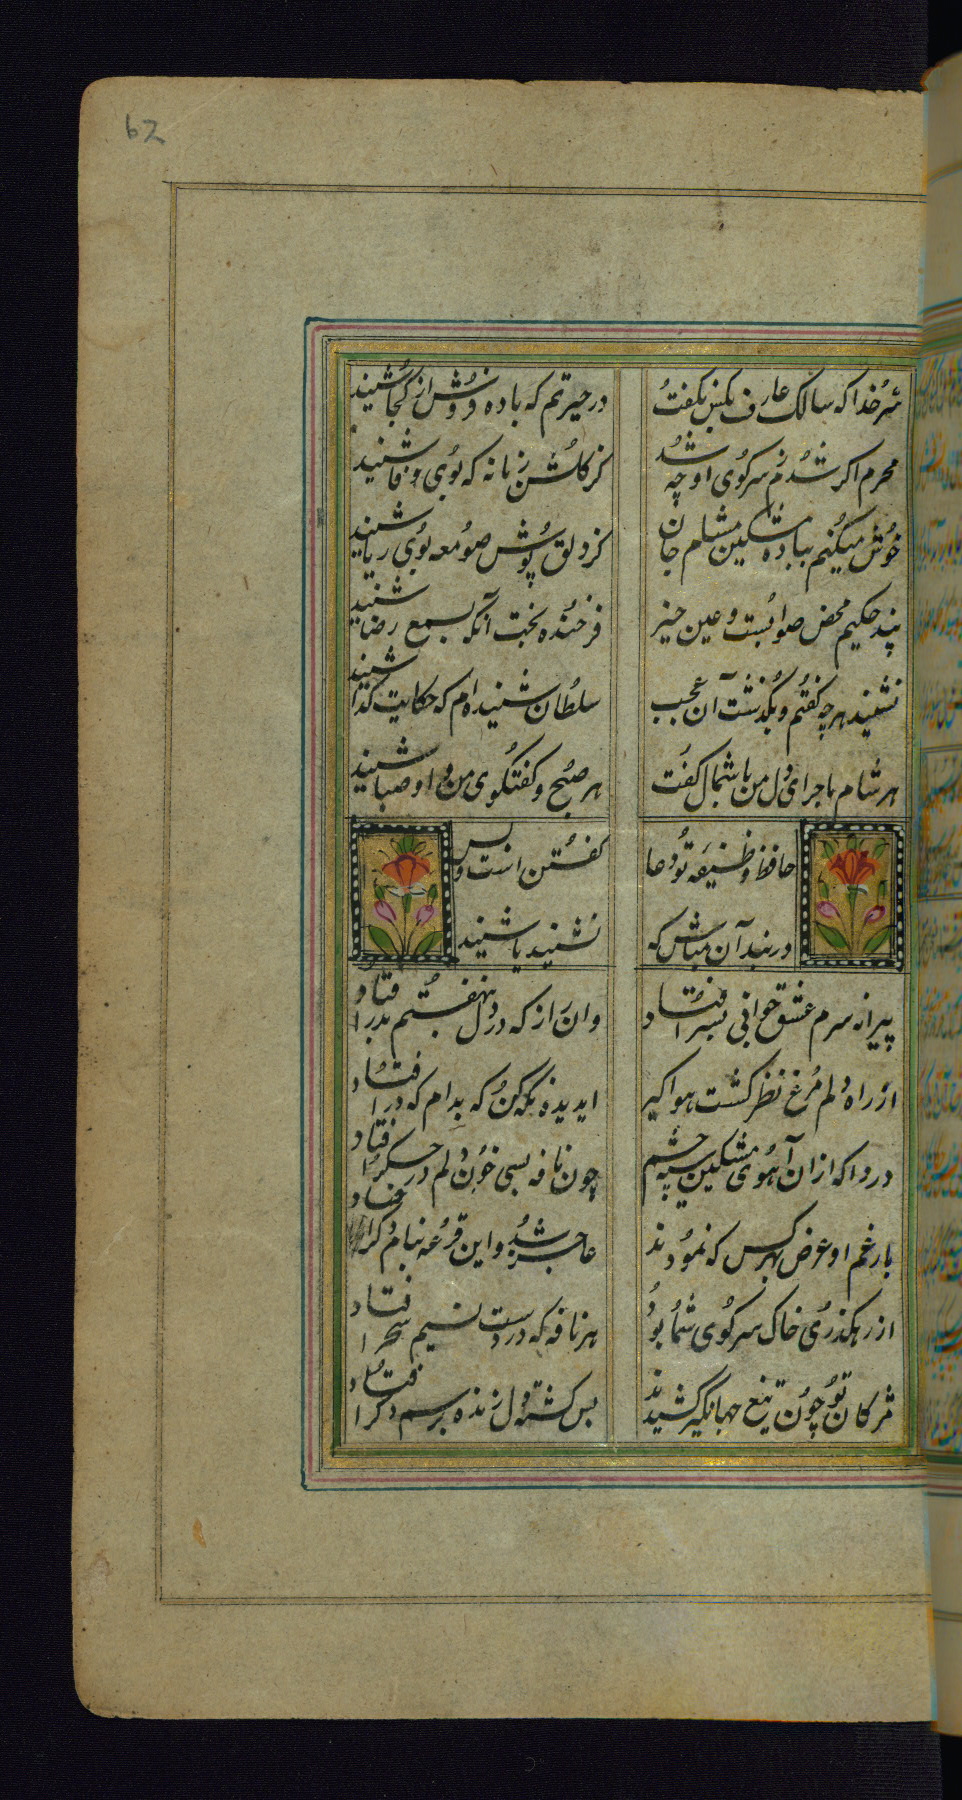 62
سر خدا که سالک عارف بکس نکفت در حیرتم که باده فروش از کجا شنید
محرم اکر شدم ز سر کوی او چه شد کز کلشن زمانه که بوی وفا شنید
خوش میکنم بباده مشکین مشام جان کز دلق پوش صومعه بوی ریا شنید
پند حکیم محض صوابست و عین خیر فرخنده بخت آنکه بسمع رضا شنید
نشنید هر چه کفتم و بکذشت آن عجب سلطان شنیده ام که حکایت کدا شنید
هر شام ماجرای دل من با شمال کفت هر صبح و کفتکوی من و او صبا شنید
حافظ وظیفه تو دعا کفتن است و بس
در بند آن مباش که نشنید یا شنید
پیرانه سرم عشق جوانی بسر افتاد وان راز که در دل بنهفتم بدر افتاد
از راه دلم مرغ نظر کشت هوا کیر ای دیده نکه کن که بدام که در افتاد
دردا که از آن آهوی مشکین سیه چشم چون نافه بسی خون دلم در جکر افتاد
بار غم او عرض بهر کس که نمودند عاجز شد و این قرعه بنام دکر افتاد
از رهکذری خاک سر کوی شما بود هر نافه که در دست نسیم سحر افتاد
مژکان تو چون تیغ جهانکیر کشیدند بس کشته دل زنده بر سر هم دکر افتاد